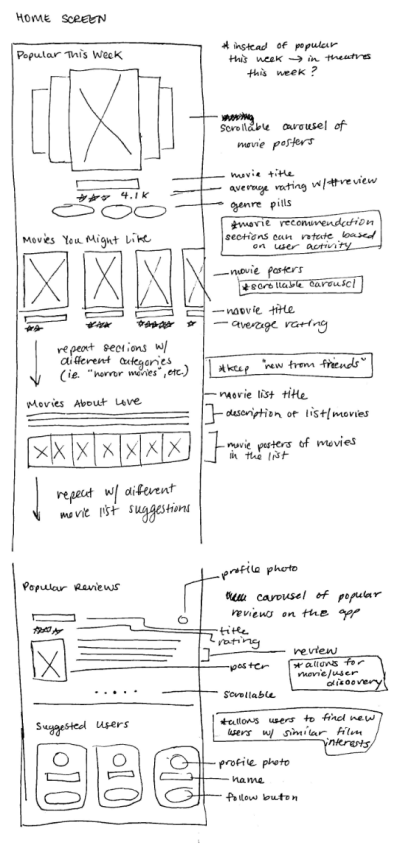 HOME SCREEN
Popular This Week
* instead of popular
this week → in theatres
this week?
scrollable carousel of
movie posters
movie title
average rating w/ # review
4.1K
genre pills
*movie recommendation
sections can rotate based
on user activity
Movies You Might Like
movie posters
*scrollable carousel
movie title
average rating
repeat sections w/
different categories
(i.e. "horror movies", etc.)
*keep "new from friends"
Movies About Love
movie list title
description of list/movies
movie posters of movies
in the list
repeat w/ different
movie list suggestions
profile photo
Popular Reviews
carousel of popular
reviews on the app
title
rating
review
poster
*allows for
movie/user
discovery
scrollable
Suggested Users
*allows users to find new
users w/ similar film
interests
profile photo
name
follow button